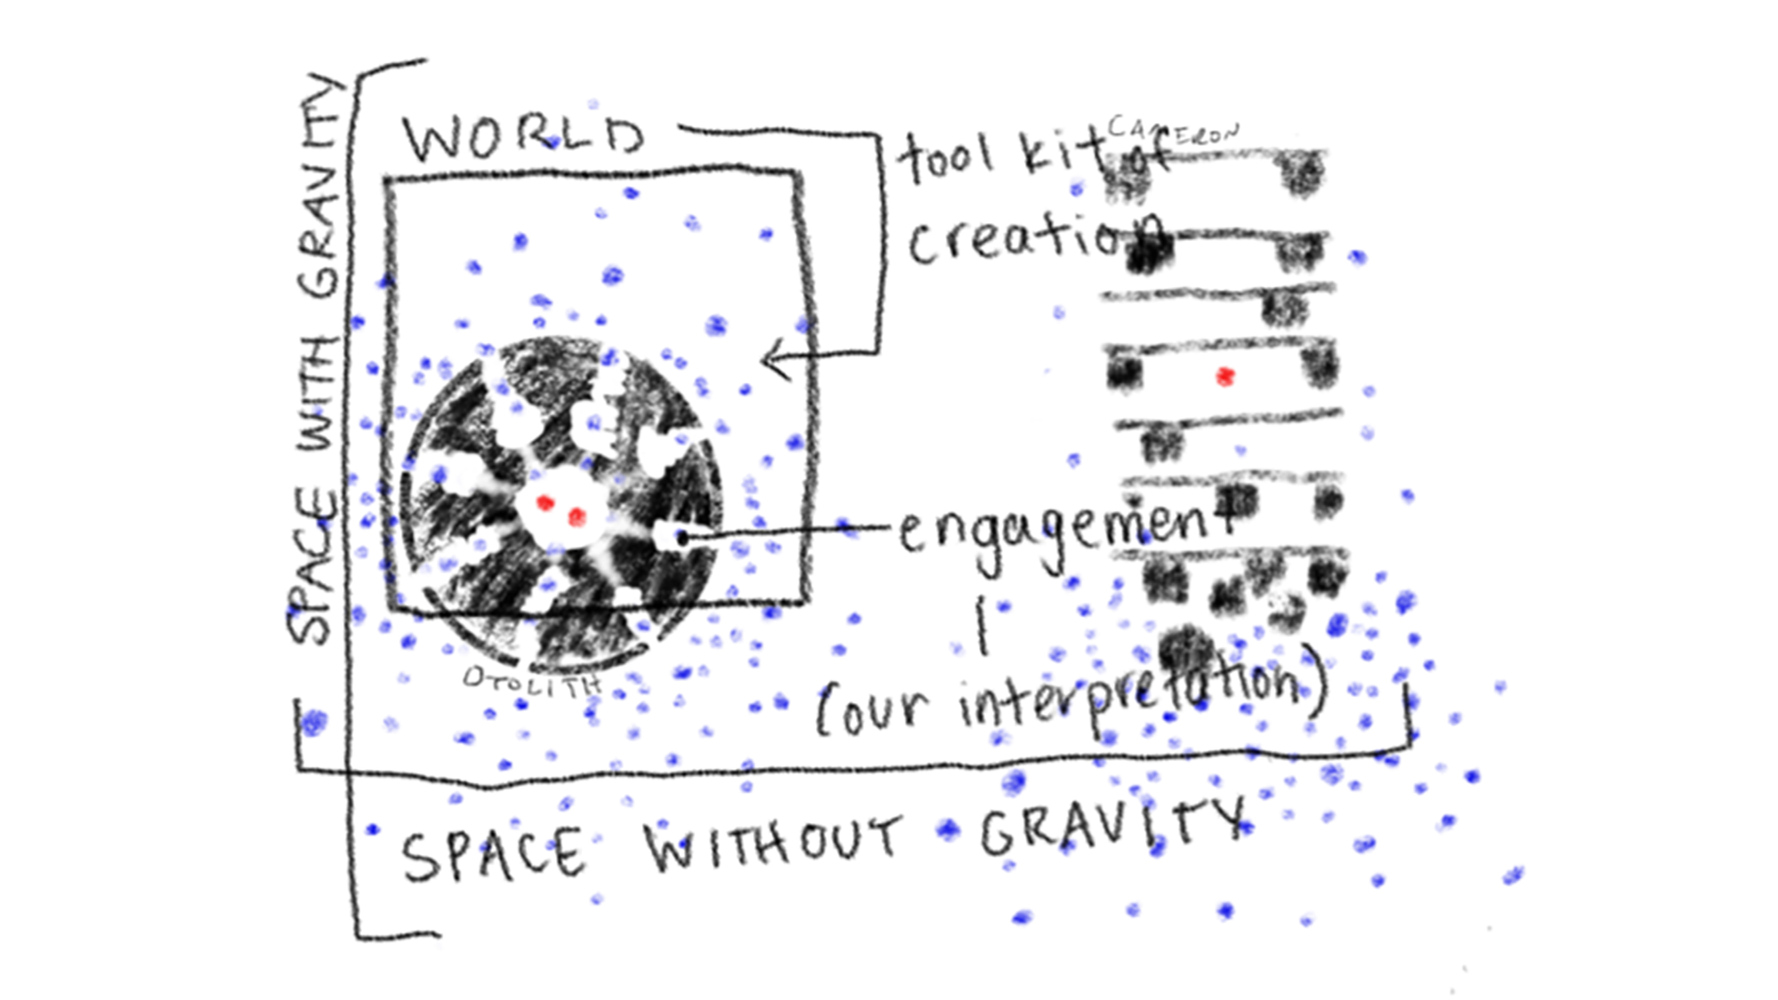 SPACE WITH GRAVITY
WORLD
tool kit of
creation
CAMERON
engagement
(our interpretation)
OTOLITH
SPACE WITHOUT GRAVITY